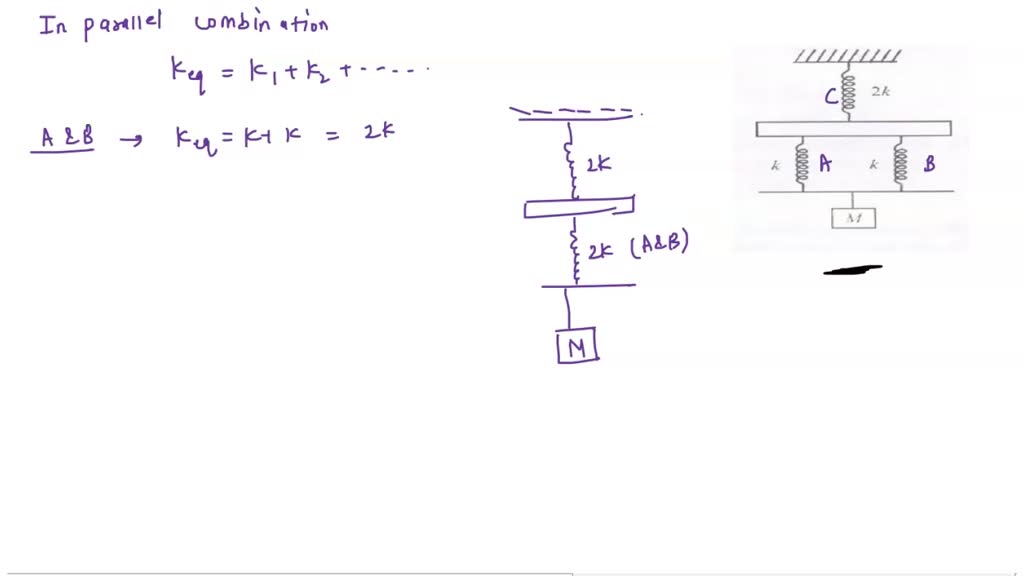 In parallel combination
Keq = K1 + K2 + -----.
A & B → Keq = K + K = 2K
2K
2K (A&B)
M
C 2k
k A k B
M